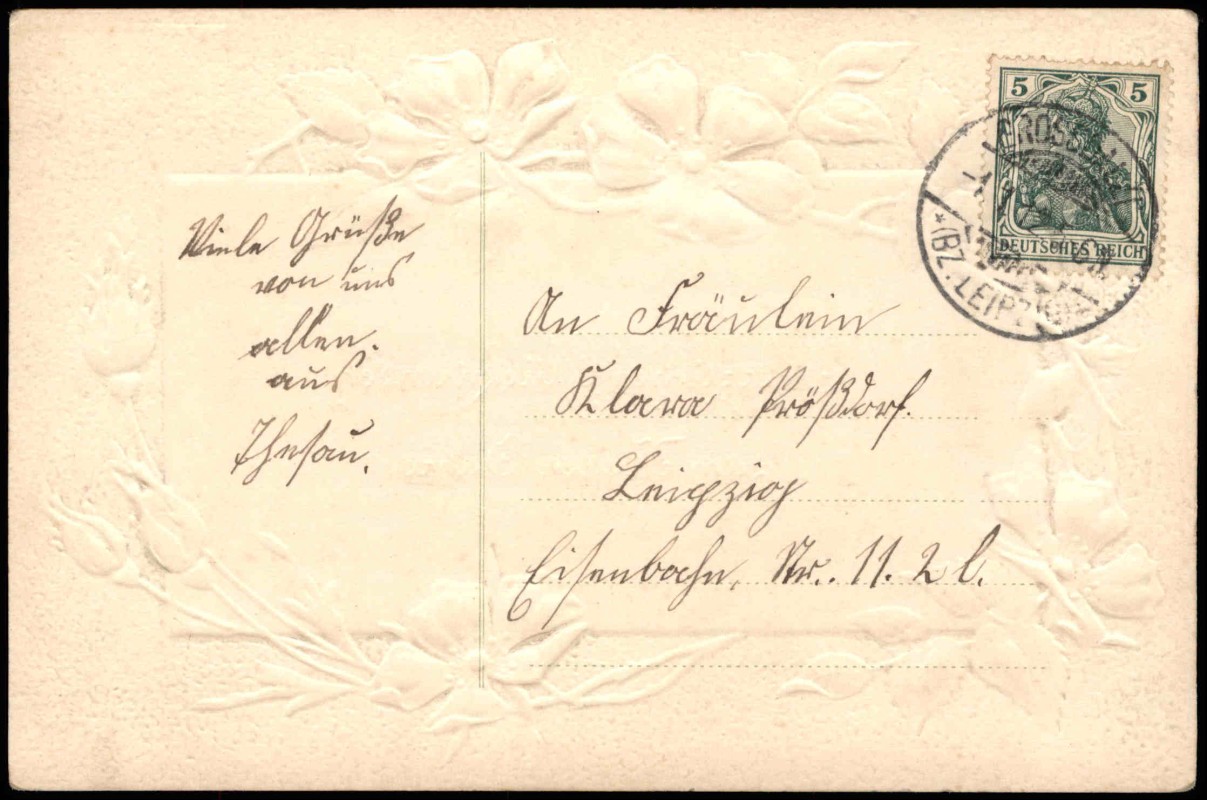 Viele Grüße
von uns
allen.
aus
Thesau.
An Fräulein
Klara Prößdorf.
Leipzig
Eisenbahn, Str.. 11. 2 l.
5 5
DEUTSCHES REICH
*(BZ. LEIPZIG)*